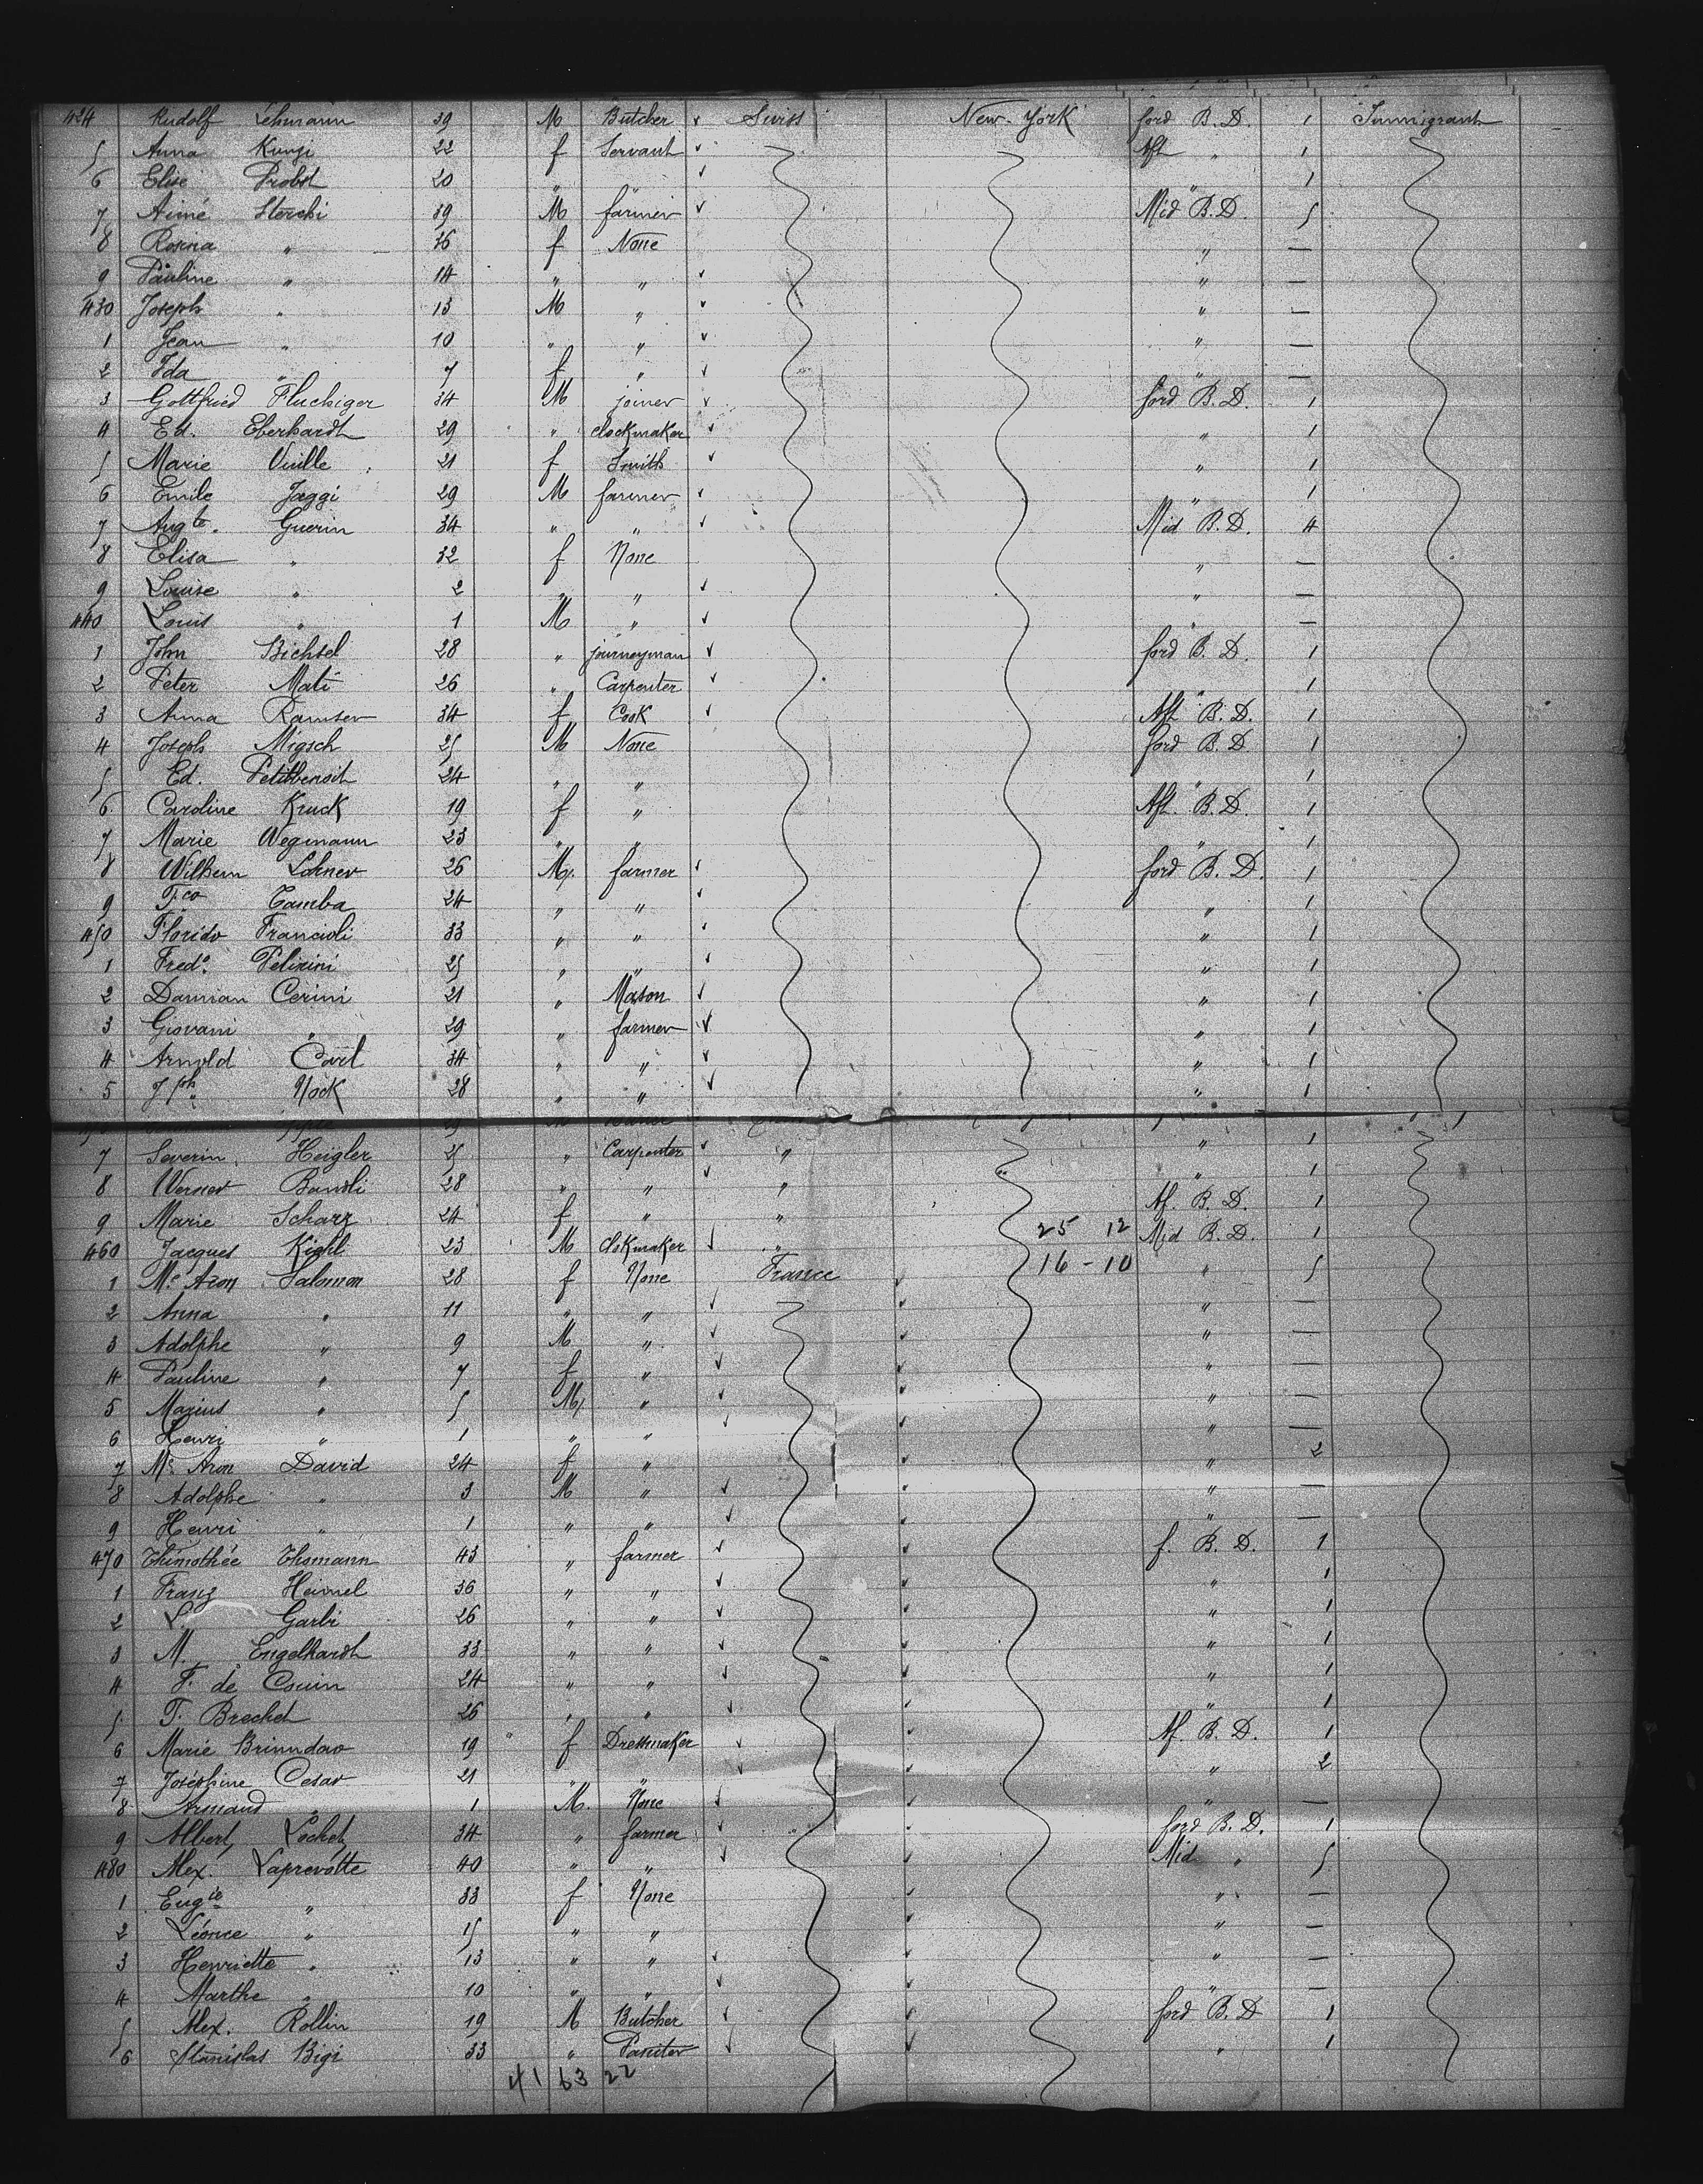 424 Rudolf Lehmann 39 M Butcher ✓ Swiss New-York ford B.D. 1 Immigrant
5 Anna Kunzi 22 f Servant ✓ Aft " 1
6 Elise Probst 20 " " ✓ " 1
7 Aimé Sterchi 39 M farmer ✓ Mid B.D. 5
8 Rosina " 36 f None " —
9 Pauline " 14 " " ✓ " —
430 Joseph " 13 M " ✓ " —
1 Jean " 10 " " ✓ " —
2 Ida " 7 f " ✓ " —
3 Gottfried Fluckiger 34 M joiner ✓ ford B.D. 1
4 Ed. Eberhardt 29 " clockmaker ✓ " 1
5 Marie Vuille 21 f Smith ✓ " 1
6 Emile Jaggi 29 M farmer ✓ " 1
7 Augte. Guerin 34 " " ✓ Mid B.D. 4
8 Elisa " 32 f None " —
9 Louise " 2 " " ✓ " —
440 Louis " 1 M " ✓ " —
1 John Bichsel 28 " journeyman ✓ ford B.D. 1
2 Peter Mati 26 " Carpenter ✓ " 1
3 Anna Ramser 34 f Cook ✓ Aft B.D. 1
4 Joseph Migsch 25 M None ford B.D. 1
5 Ed. Petitbenoit 24 " " " 1
6 Caroline Kruck 19 f " Aft. B.D. 1
7 Marie Wegmann 23 " " " 1
8 Wilhem Lohner 26 M. farmer ✓ ford B.D. 1
9 Fco Tamba 24 " " ✓ " 1
450 Florido Francioli 33 " " ✓ " 1
1 Fredo. Pelizini 25 " " ✓ " 1
2 Damian Cerini 21 " Mason ✓ " 1
3 Giovani " 29 " farmer ✓ " 1
4 Arnold Carl 34 " " ✓ " 1
5 Jph. Nock 28 " " ✓ " 1
7 Severin Heigler 25 " Carpenter ✓ " " 1
8 Werner Bandli 28 " " ✓ " " 1
9 Marie Scharz 24 f " " Af. B.D. 1
460 Jacques Kiehl 23 M Clokmaker ✓ " 25 12 Mid B.D. 1
1 Me Aron Salomon 28 f None France ✓ 16 - 10 " 5
2 Anna " 11 " " ✓ ✓ " —
3 Adolphe " 9 M " ✓ ✓ " —
4 Pauline " 7 f " ✓ ✓ " —
5 Marius " 5 M. " ✓ ✓ " —
6 Henri " 1 " " ✓ ✓ " —
7 Me Aron David 24 f " ✓ " 2
8 Adolphe " 3 M " ✓ ✓ " —
9 Henri " 1 " " ✓ ✓ " —
470 Thimothée Thomann 43 " farmer ✓ ✓ f. B.D. 1
1 Franz Heimel 36 " " ✓ ✓ " 1
2 L. Garbi 26 " " ✓ ✓ " 1
3 M. Engelhardt 33 " " ✓ ✓ " 1
4 F. de Couin 24 " " ✓ ✓ " 1
5 T. Brechet 26 " " ✓ ✓ " 1
6 Marie Brinndao 19 f Dressmaker ✓ ✓ Af. B.D. 1
7 Joséphine Cesar 21 " " ✓ ✓ " 2
8 Armand " 1 M. None ✓ ✓ " —
9 Albert Lochet 34 " farmer ✓ ✓ ford B.D. 1
480 Alex. Laprevotte 40 " " ✓ ✓ Mid " 5
1 Eugie " 33 f None ✓ " —
2 Léonce " 15 " " ✓ " —
3 Henriette " 13 " " ✓ ✓ " —
4 Marthe " 10 " " ✓ ✓ " —
5 Alex. Rollin 19 M Butcher ✓ ✓ ford B.D 1
6 Stanislas Bigi 33 " Paniter ✓ ✓ " 1
41 63 22